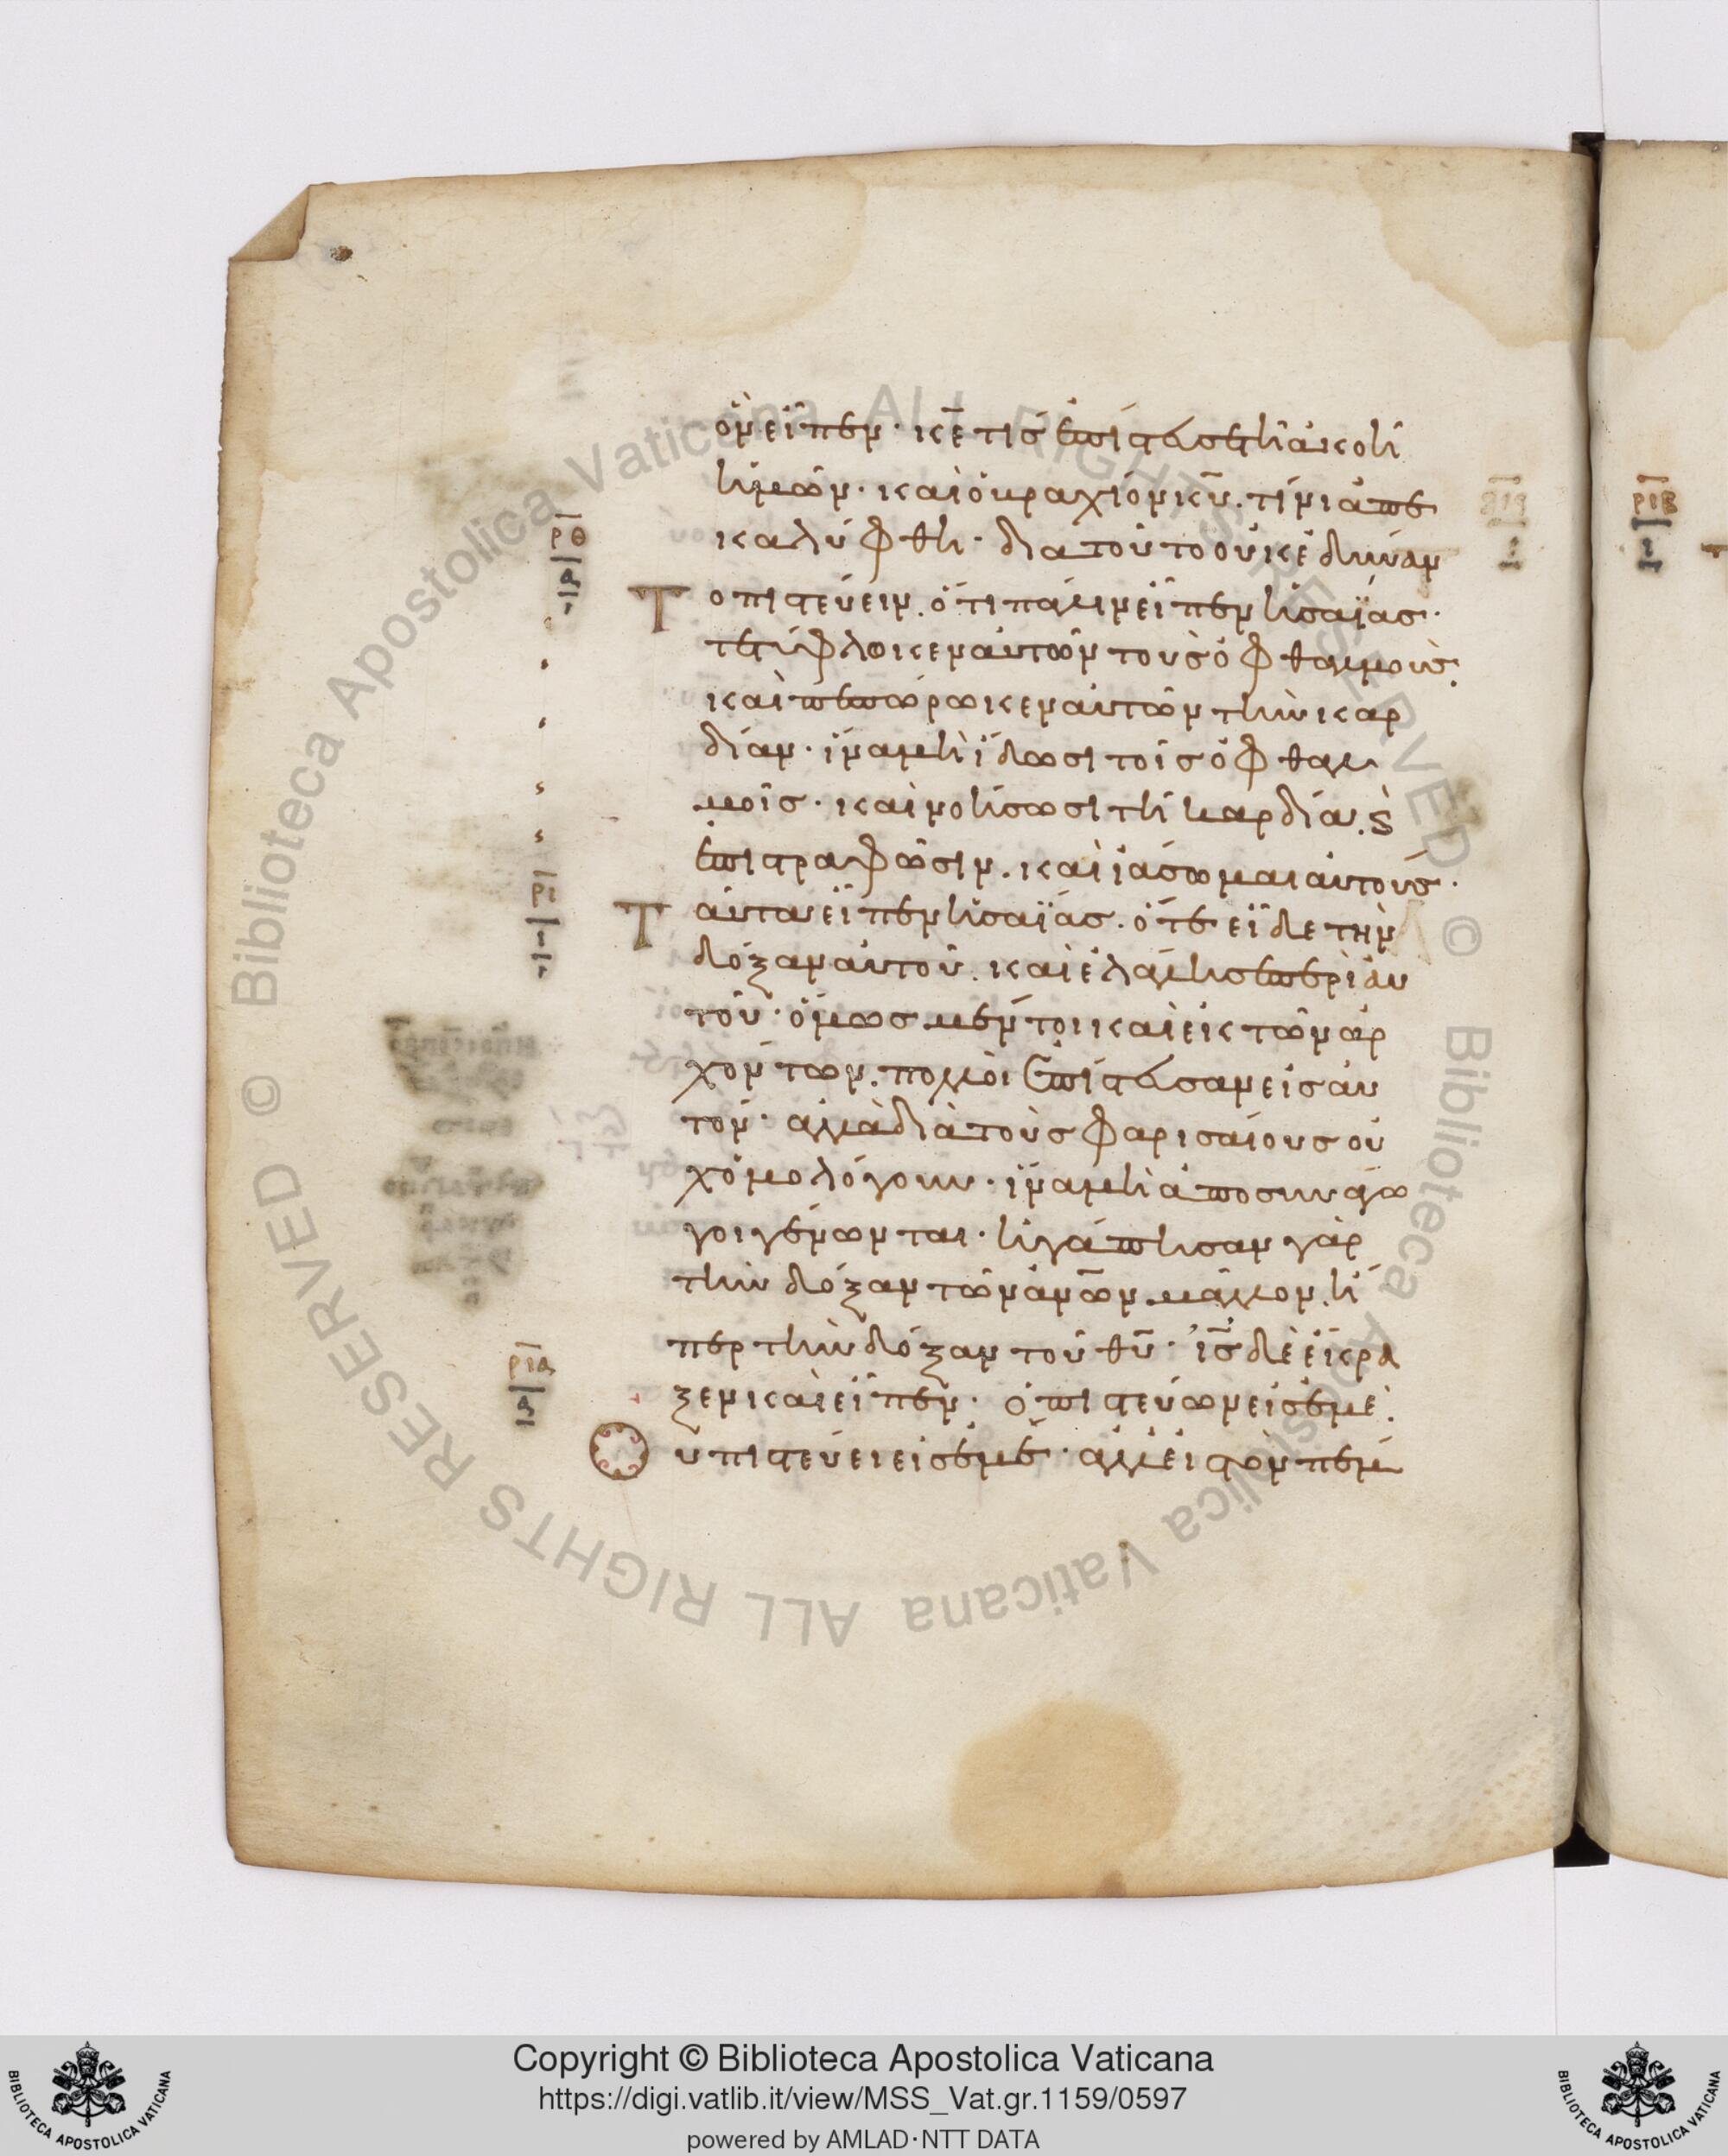 ὃν εἶπεν· κ̅ε̅ τίς ἐπίστευσεν τῆ ἀκοῆ
ἡμῶν· καὶ ὁ βραχίων κ̅υ̅. τίνι ἀπε
καλύφθη· διατοῦτο οὐκ ἐδύναν
το πιστεύειν. ὅτι πάλιν εἶπεν ἡσαΐας·
τετύφλωκεν αὐτῶν τοὺς ὀφθαλμοὺς.
καὶ πεπώρωκεν αὐτῶν τὴν καρ
δίαν· ἵνα μὴ ἴδωσι τοῖς ὀφθαλ
μοῖς· καὶ νοήσωσι τῆ καρδία. ϗ
ἐπιστραφῶσιν. καὶ ἰάσωμαι αὐτούς·
Ταῦτα εἶπεν ἡσαΐας. ὅτε εἶδε τὴν
δόξαν αὐτοῦ. καὶ ἐλάλησε περὶ αὐ
τοῦ· ὅμως μέντοι καὶ ἐκ τῶν ἀρ
χόντων. πολλοὶ ἐπίστευσαν εἰς αὐ
τόν· ἀλλὰ διὰ τοὺς φαρισαίους οὐ
χ ὁμολόγουν· ἵνα μὴ ἀποσυναγω
γοι γένωνται· ἠγάπησαν γὰρ
τὴν δόξαν τῶν ἀν̅ων μᾶλλον. ἤ
περ τὴν δόξαν τοῦ θ̅υ̅· ι̅ς̅ δὲ ἔκρα
ξεν καὶ εἶπεν· ὁ πιστεύων εἰς ἐμὲ.
Οὐ πιστεύει εἰς ἐμέ· ἀλλ εἰς τὸν πέμ
ρ̅θ̅
δ
ρ̅ι̅
ι
ρ̅ι̅α̅
α
ρ̅ι̅β̅
ι
© Biblioteca Apostolica Vaticana ALL RIGHTS RESERVED © Biblioteca Apostolica Vaticana ALL RIGHTS RESERVED
BIBLIOTECA APOSTOLICA VATICANA
Copyright © Biblioteca Apostolica Vaticana
https://digi.vatlib.it/view/MSS_Vat.gr.1159/0597
powered by AMLAD·NTT DATA
BIBLIOTECA APOSTOLICA VATICANA